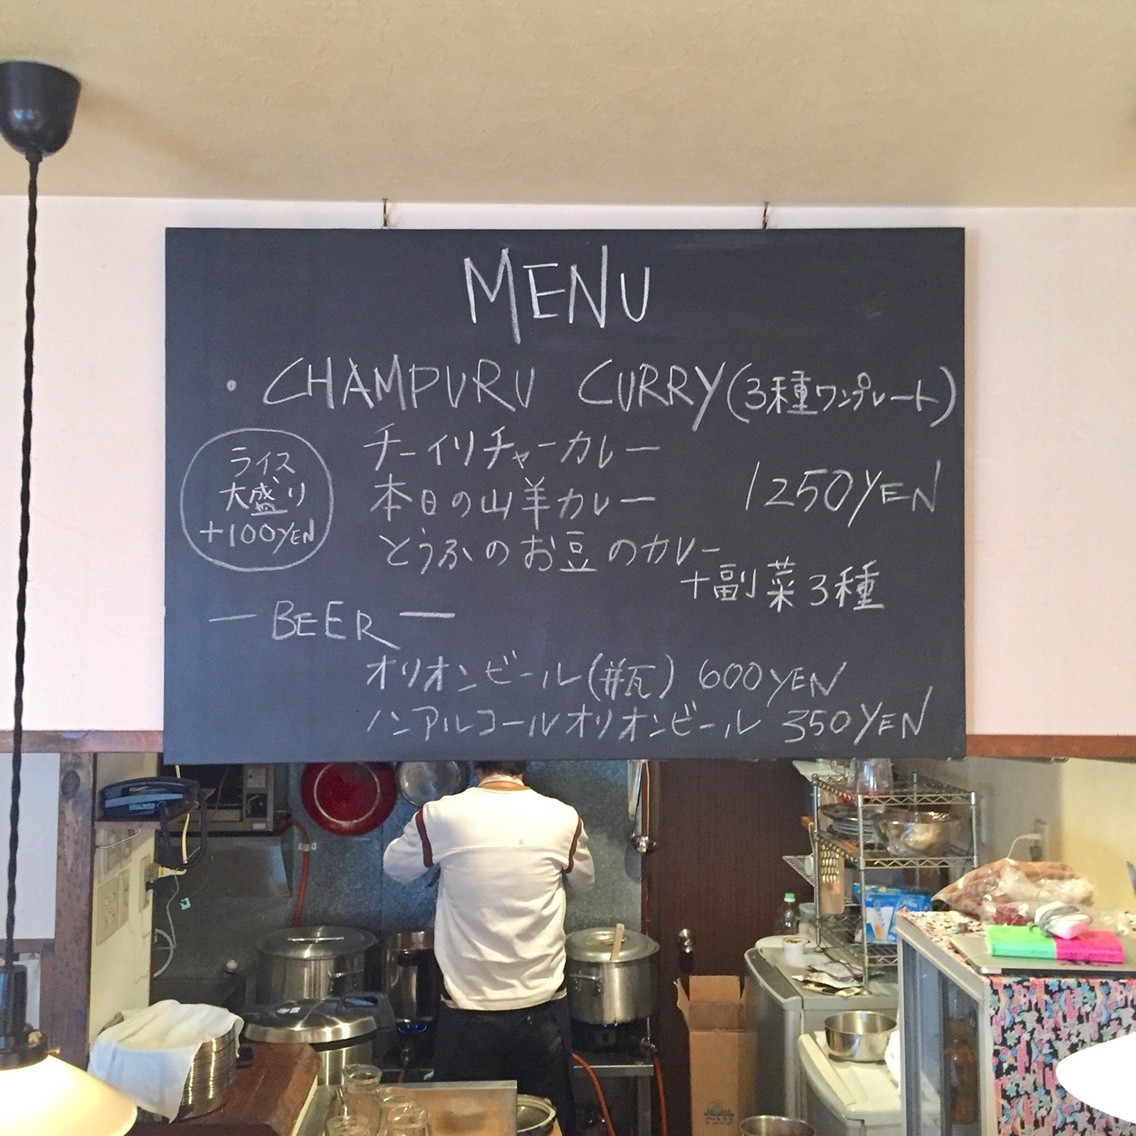 MENU
・CHAMPURU CURRY(3種ワンプレート)
チーイリチャーカレー
本日の山羊カレー
とうふのお豆のカレー
1250YEN
+副菜3種
ライス
大盛り
+100YEN
—BEER—
オリオンビール(#瓦) 600YEN
ノンアルコールオリオンビール 350YEN